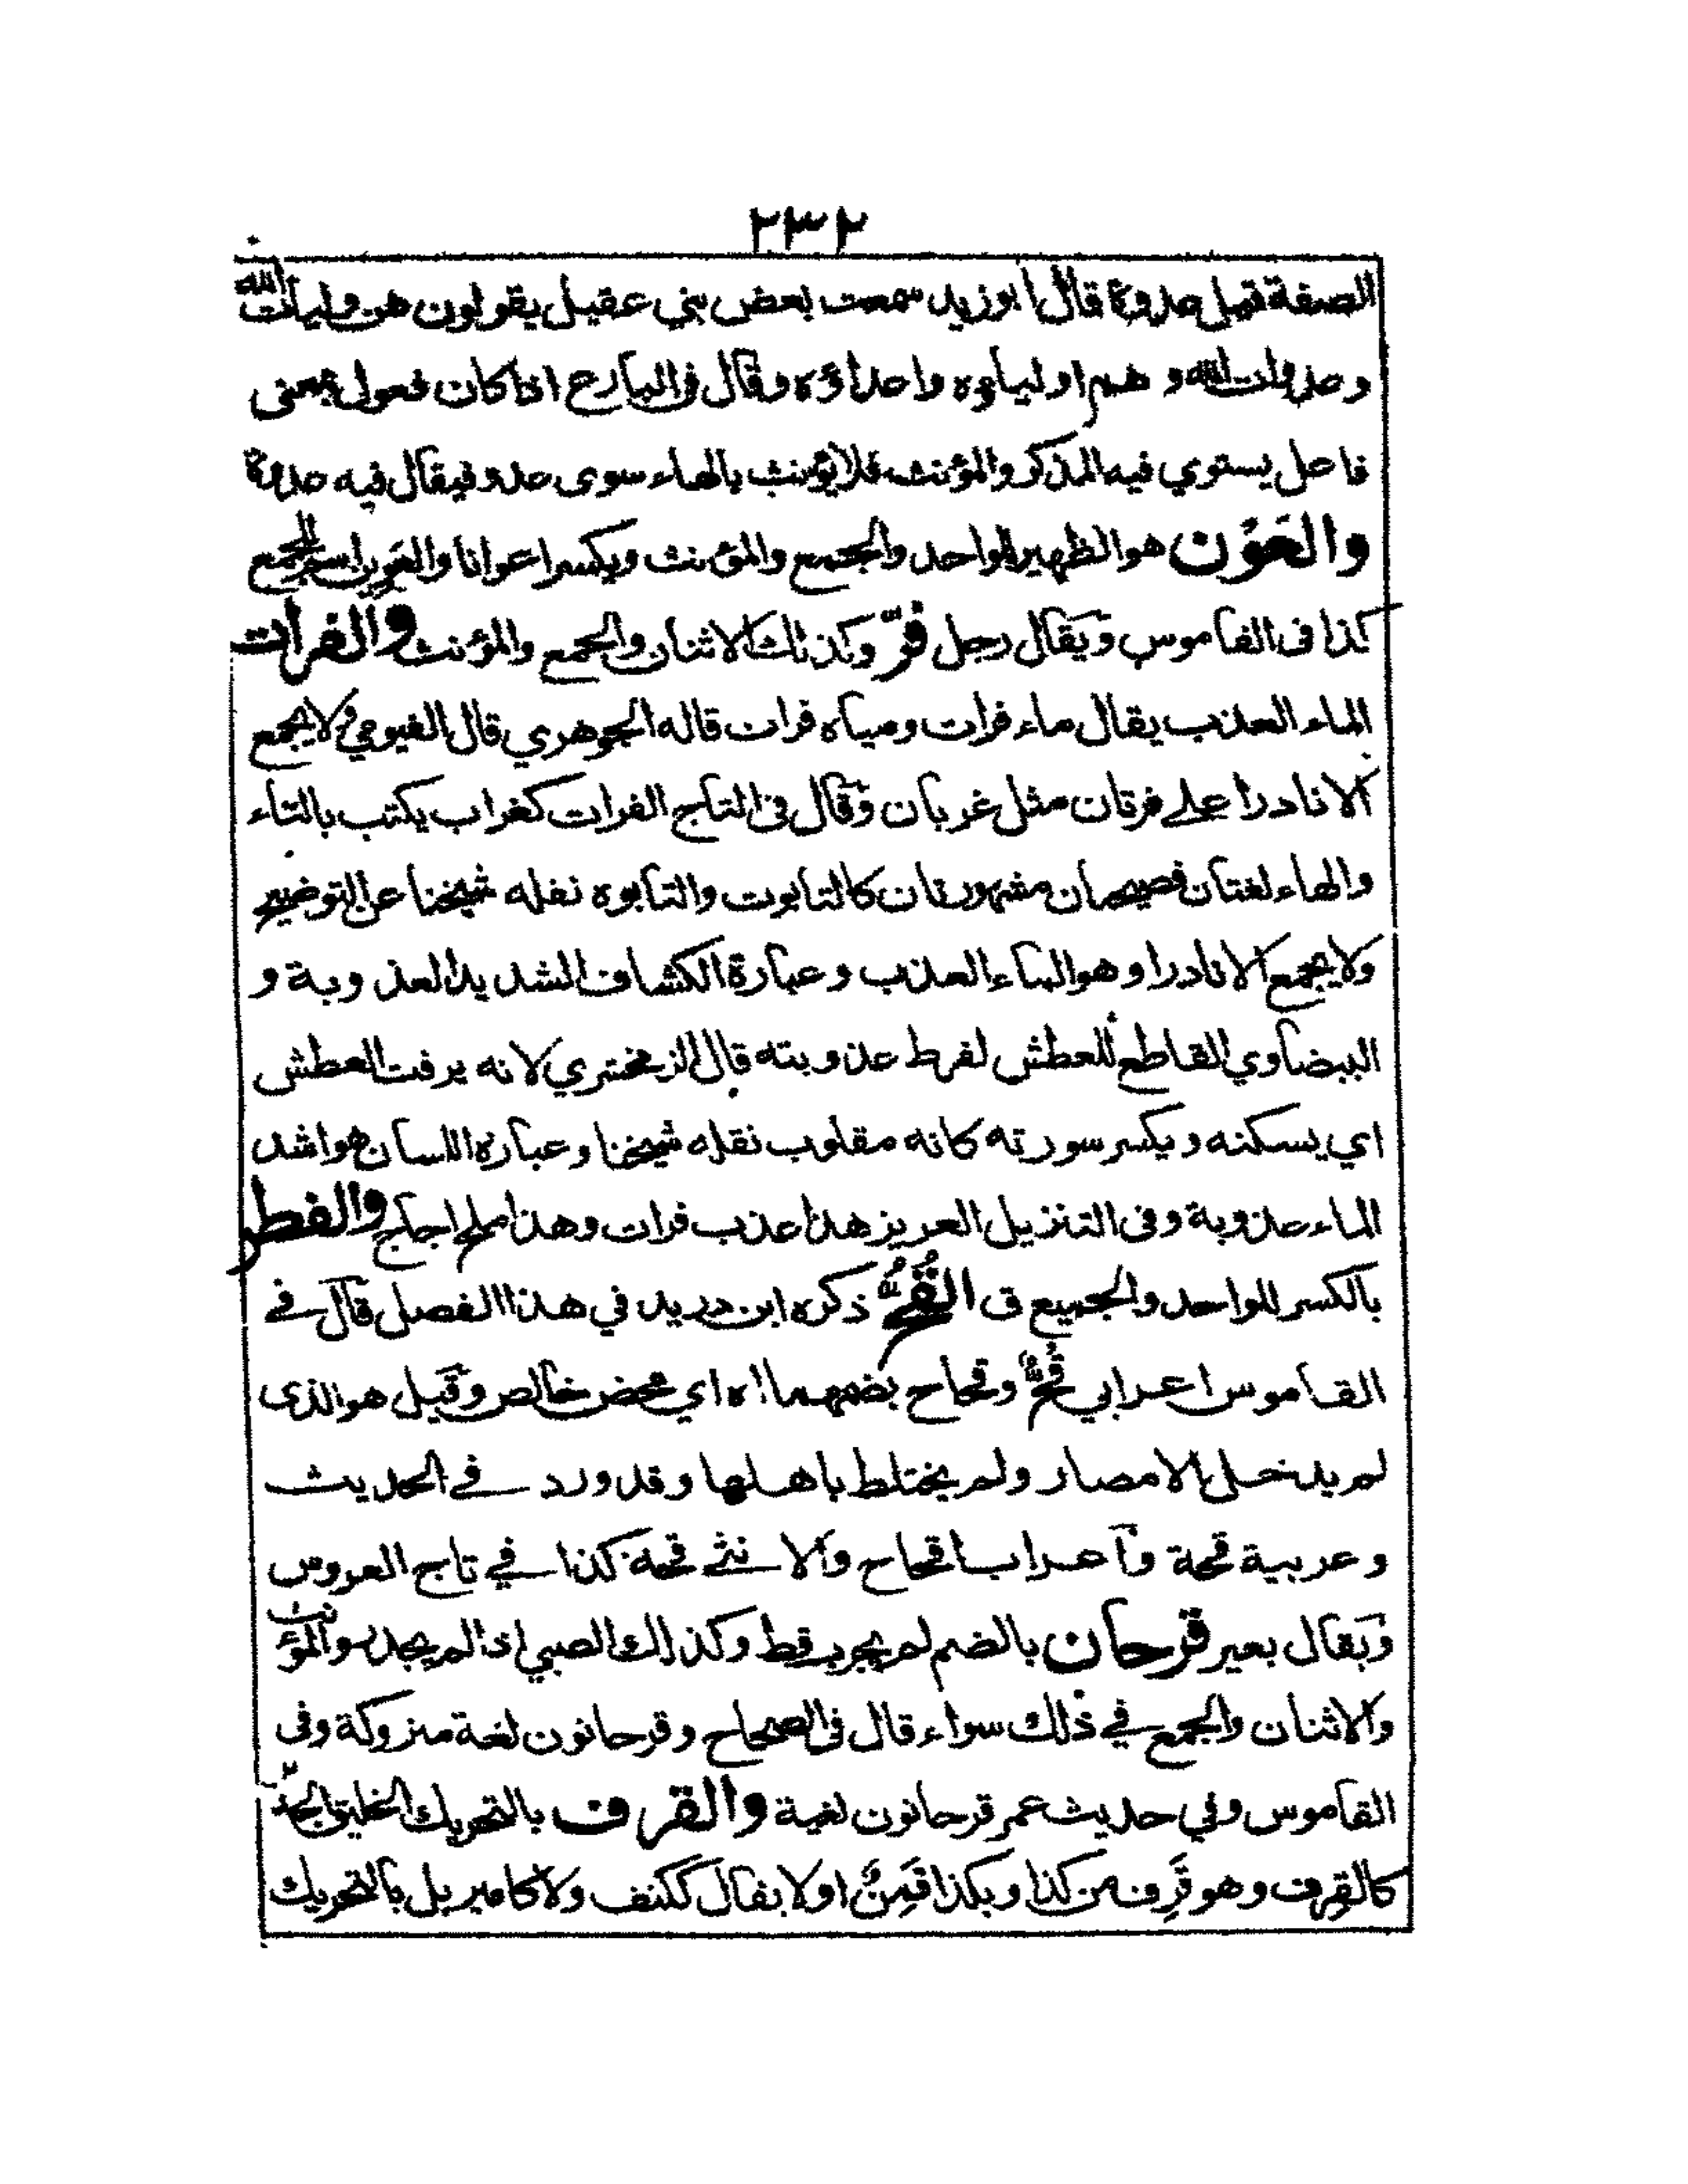 ٢٣٢
الصفة قيل عدوة قال ابو زيد سمعت بعض بني عقيل يقولون هن وليات الله
وعدوات الله وهم اولياؤه واعداؤه وقال في البارع اذا كان فعول بمعنى
فاعل يستوي فيه المذكر والمؤنث فلا يؤنث بالهاء سوى عدو فيقال فيه عدوة
والعَوْن هو الظهير للواحد والجمع والمؤنث ويكسر اعوانا والعَوِين اسم للجمع
كذا في القاموس ويقال رجل فرّ وكذلك الاثنان والجمع والمؤنث والفرات
الماء العذب يقال ماء فرات ومياه فرات قاله الجوهري قال الفيومي ولا يجمع
الا نادرا على فرتان مثل غربان وقال في التاج الفرات كغراب يكتب بالتاء
والهاء لغتان فصيحتان مشهورتان كالتابوت والتابوه نقله شيخنا عن التوضيح
ولا يجمع الا نادرا وهو الماء العذب وعبارة الكشاف الشديد العذوبة و
البيضاوي القاطع للعطش لفرط عذوبته قال الزمخشري لانه يرفت العطش
اي يسكنه ويكسر سورته كانه مقلوب نقله شيخنا وعبارة اللسان هو اشد
الماء عذوبة وفى التنزيل العزيز هذا عذب فرات وهذا ملح اجاج والفطر
بالكسر للواحد والجميع ق القُحُّ ذكره ابن دريد في هذا الفصل قال في
القاموس اعرابي قُحٌّ وقحاح بضمهما اه اي محض خالص وقيل هو الذى
لم يدخل الامصار ولم يختلط باهلها وقد ورد في الحديث
وعربية قحة وآعراب اقحاح والانثى قحة كذا في تاج العروس
ويقال بعير قرحان بالضم لم يجرب قط وكذلك الصبي اذا لم يجدر والمؤنث
والاثنان والجمع في ذلك سواء قال في الصحاح وقرحانون لغة متروكة وفى
القاموس وفي حديث عمر قرحانون لغية والقرف بالتحريك الخليق الجدير
كالقرف وهو قَرِف من كذا وبكذا قَمِنٌ او لا يقال ككتف ولا كامير بل بالتحريك